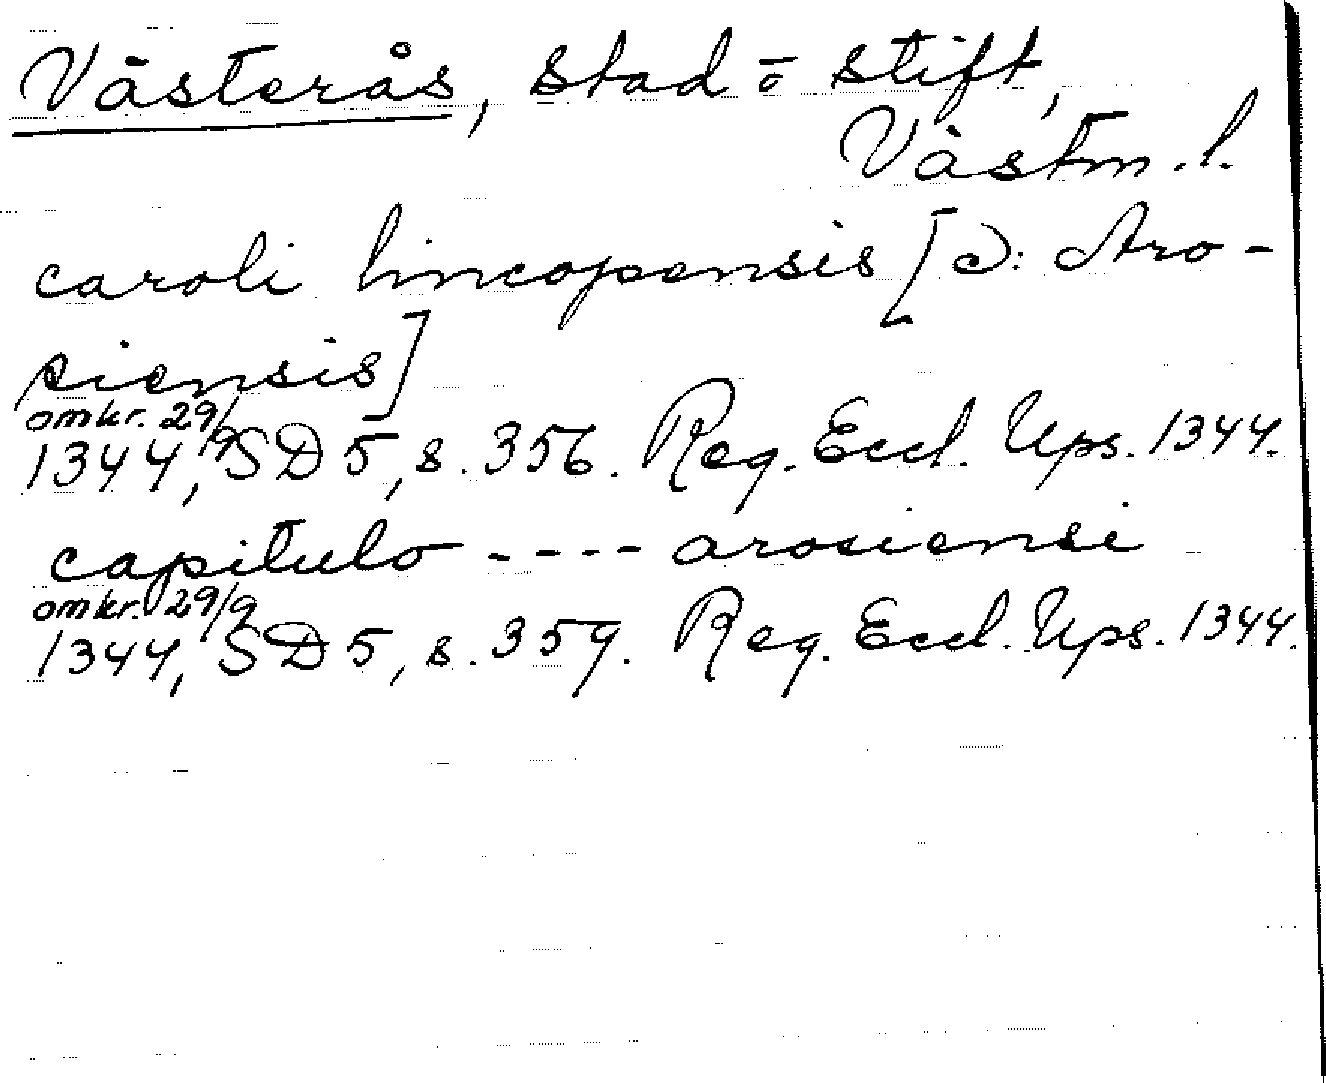 Västerås, stad o stift,
Västm. l.
caroli lincopensis [ɔ: Aro-
siensis]
omkr. 29/9
1344, SD 5, s. 356. Reg. Eccl. Ups. 1344.
capitulo ---- arosiensi
omkr. 29/9
1344, SD 5, s. 359. Reg. Eccl. Ups. 1344.